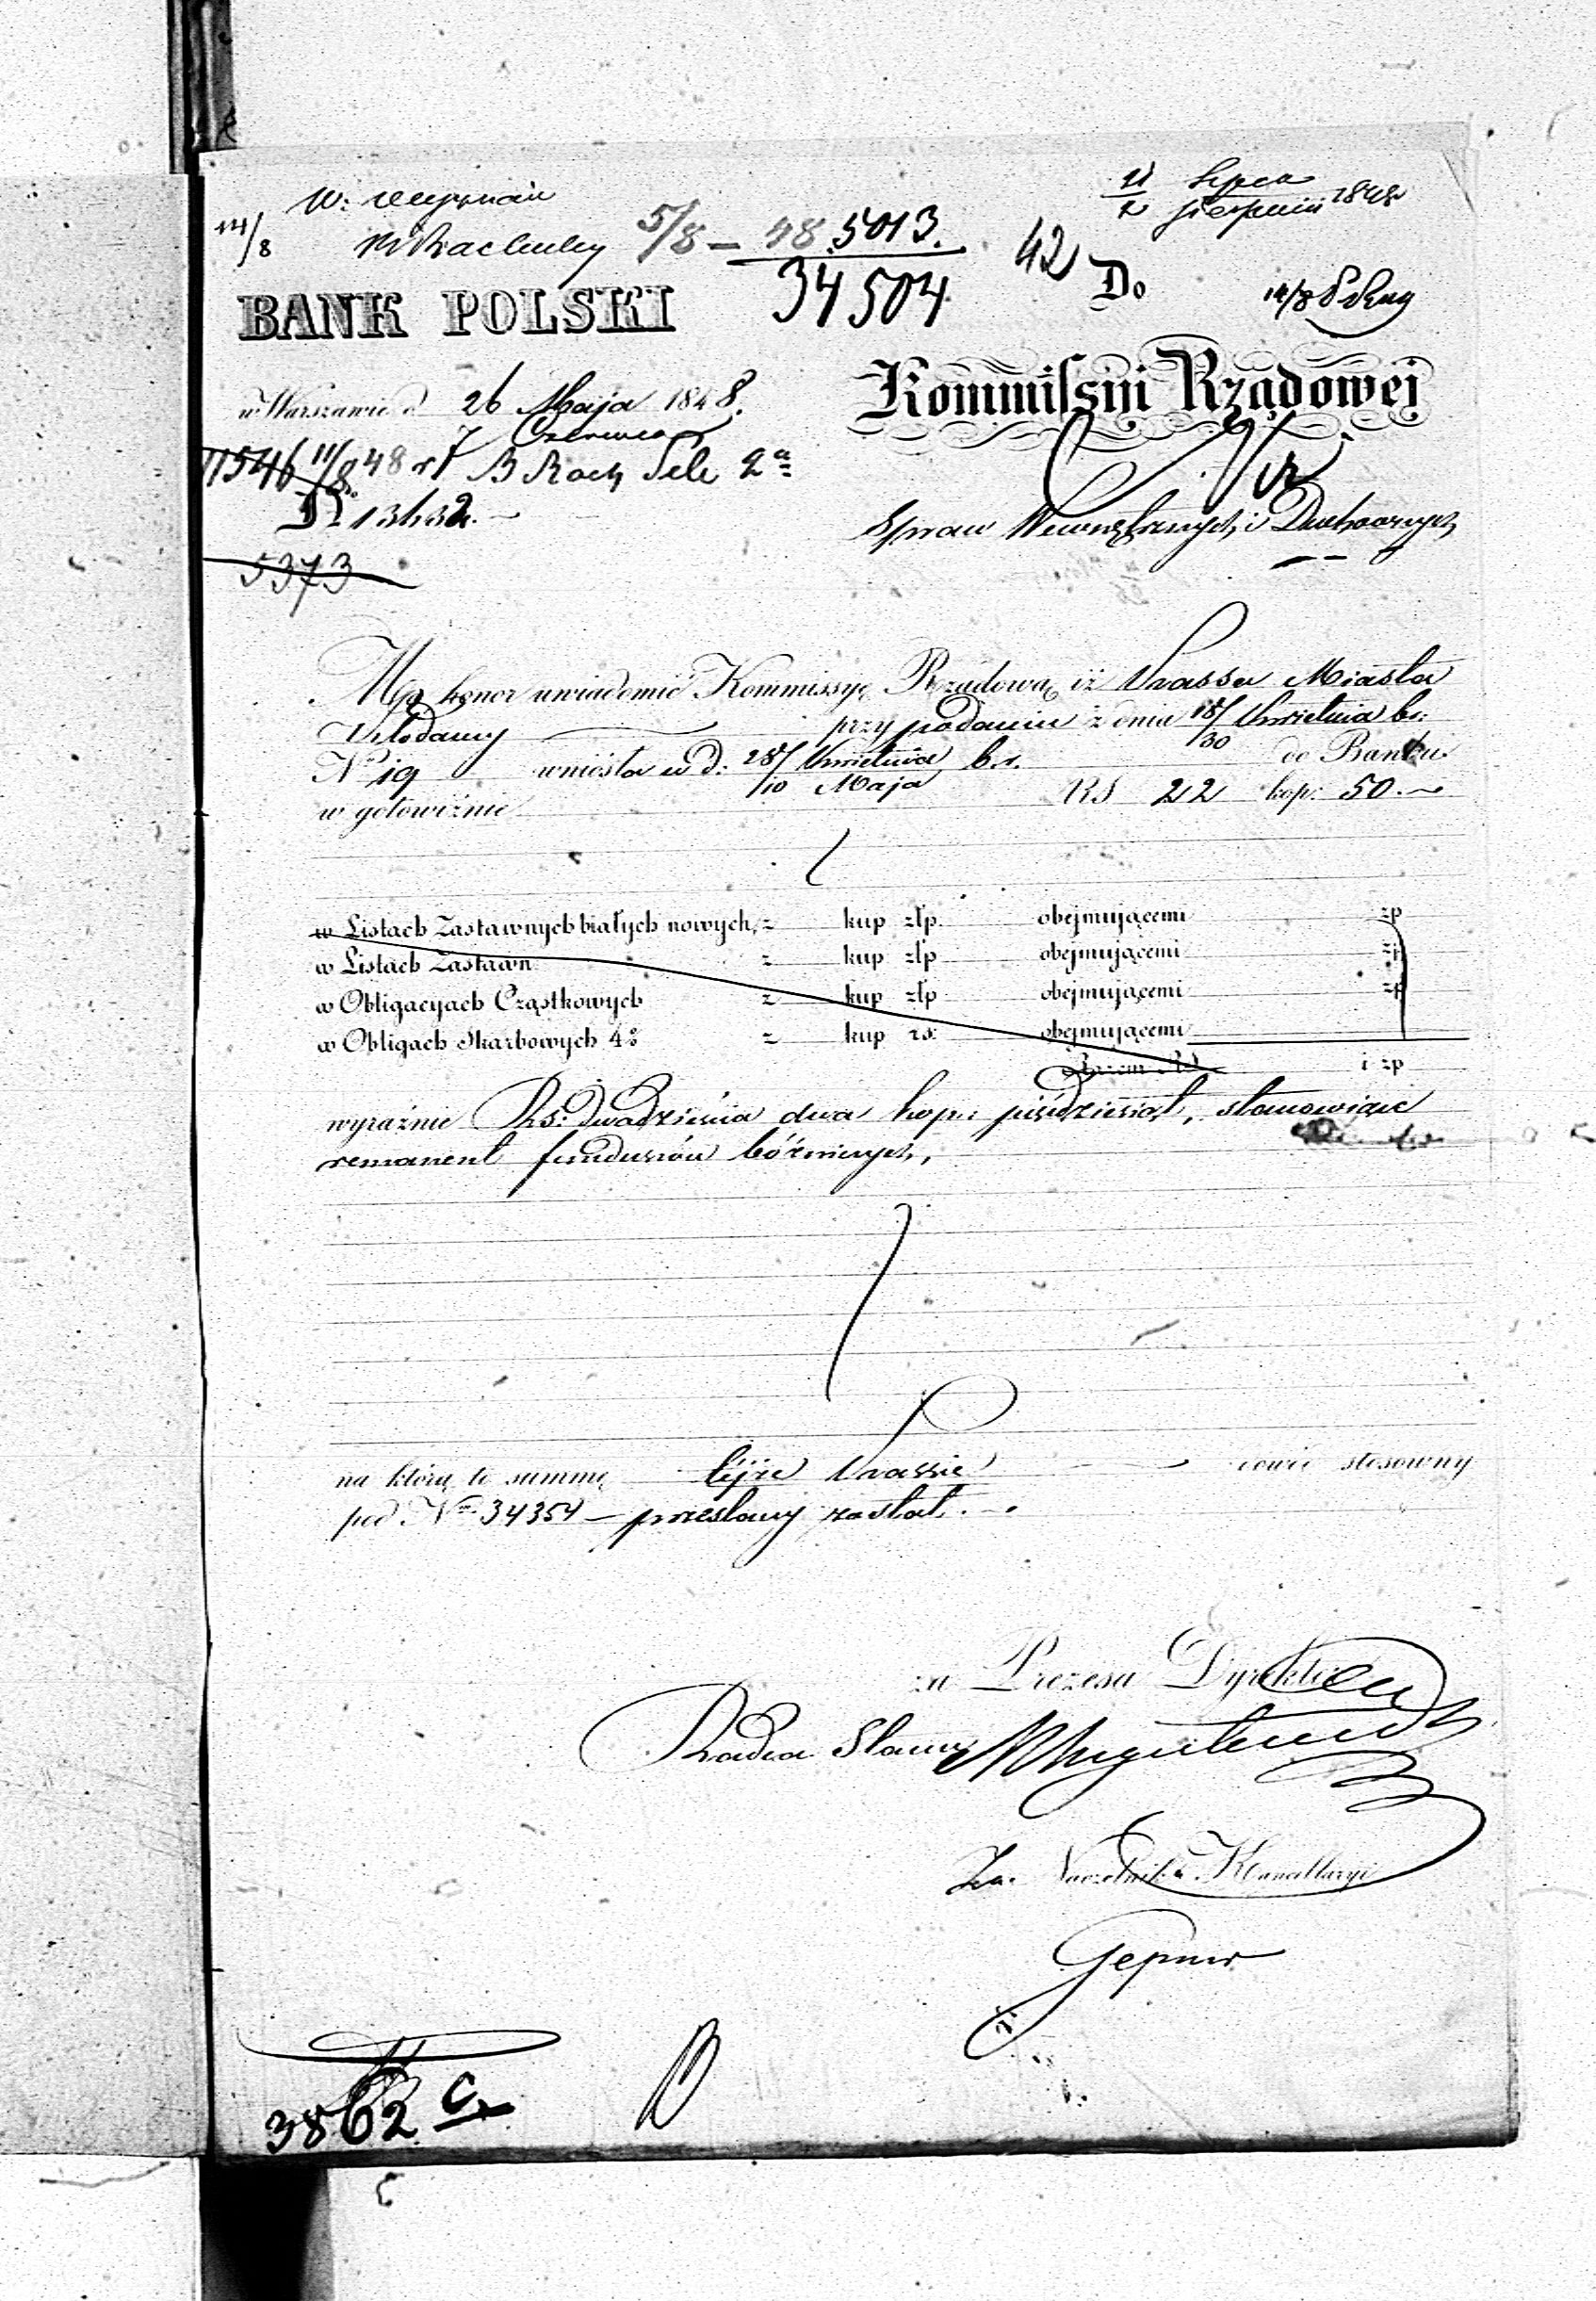 14/8
5/8 – 48.5013.
34504
42
Lipca
Sierpnia 1848
Do
BANK POLSKI
Kommissyi Rządowej
w Warszawie d 26 Maja 1848.
7 Czerwca
11546 11/8 48
№ 13632.
Spraw Wewnętrznych i Duchownych
5373
Ma honor uwiadomić Kommissyę Rządową iż Kassa Miasta
Włodawy przy podaniu z dnia 18/30 Kwietnia b.r.
No 19 wniosła w d: 28/10 Kwietnia Maja b.r. do Banku
w gotowiźnie RS 22 kop: 50.
w Listach Zastawnych białych nowych, z kup złp. obejmującemi zp
w Listach Zastawn z kup złp obejmującemi zp
w Obligacyach Cząstkowych z kup złp obejmującemi zp
w Obligach Skarbowych 4% z kup rs. obejmującemi
Razem RS i zp
wyraźnie Rs: dwadzieścia dwa kop.: pięćdziesiąt, stanowiące
remanent funduszów bóżniczych,
na którą to summę tejże Kassie kwit stosowny
pod No 34354 – przesłany został.
za Prezesa Dyrektor
Radca Stanu
Za. Naczelnika Kancellaryi
Gepner
3862 C.